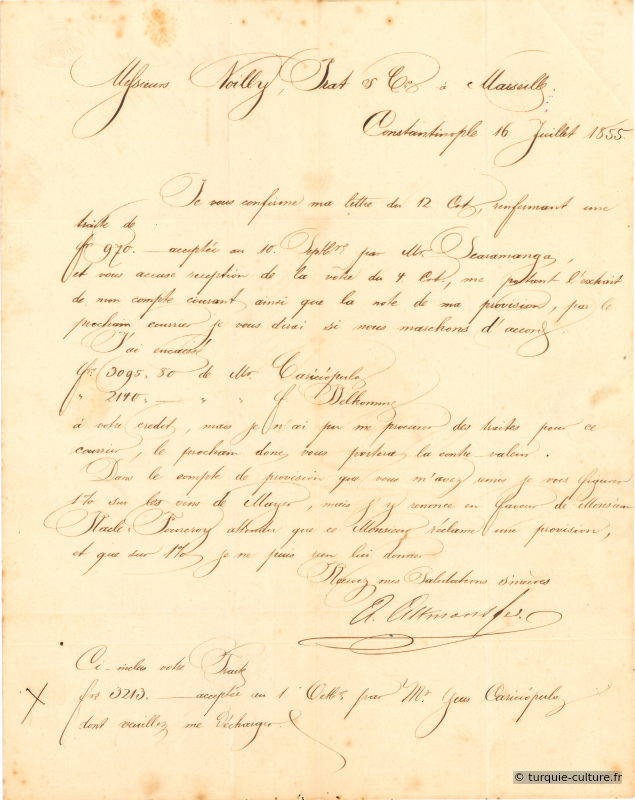 Messieurs Noilly, Prat & Cie à Marseille.
Constantinople 16 Juillet 1855.
Je vous confirme ma lettre du 12 Ct, renfermant une
traite de
frs 970. — acceptée au 10. Septbre par Mr. Scaramanga,
et vous accuse reception de la votre du 4 Ct., me portant l'extrait
de mon compte courant ainsi que la note de ma provision, par le
prochain courrier je vous dirai si nous marchons d'accord.
J'ai encaissé
frs 3095. 80 de Mr. Cariciópulo
" 2140. — " " Delhomme
à votre credit, mais je n'ai pu me procurer des traites pour ce
courrier, le prochain donc vous portera la contre-valeur.
Dans le compte de provision que vous m'avez remis je vois figurer
1% sur les vins de Mayer, mais j'y renonce en faveur de Monsieur
attendu que ce Monsieur réclame une provision,
et que sur 1% je ne puis rien lui donner
Recevez mes Salutations sincères
Ci-inclus votre Traite
frs 3213. — acceptée au 1 Octbre par Mr Cariciópulo
dont veuillez me décharger.
© turquie-culture.fr